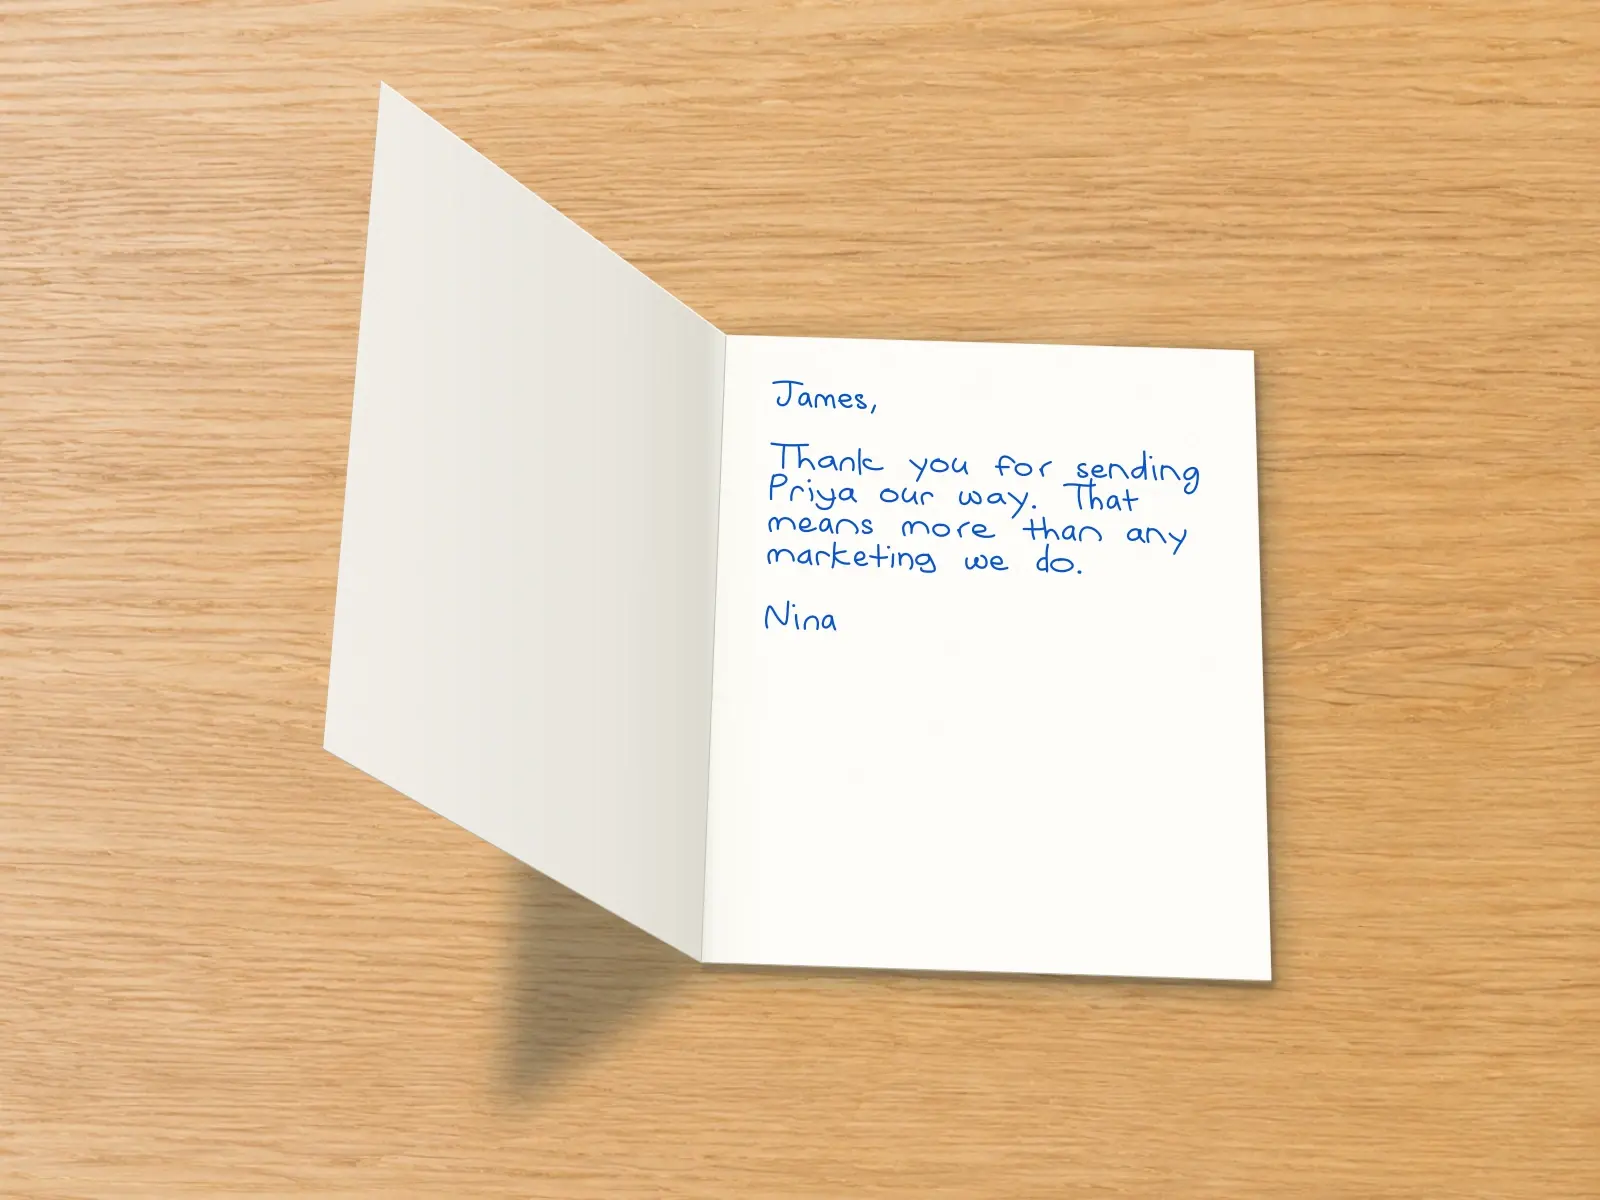 James,
Thank you for sending
Priya our way. That
means more than any
marketing we do.
Nina